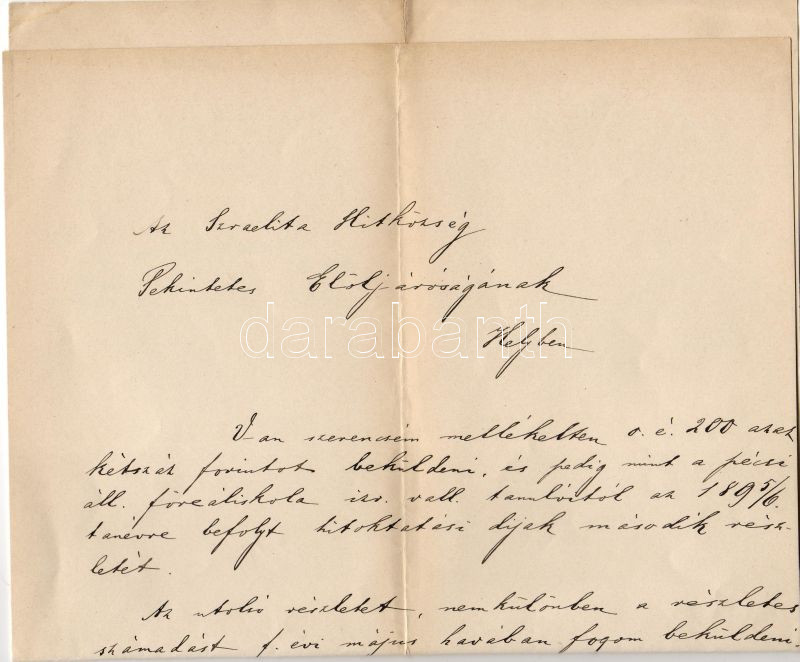 Az Izraelita Hitközség
Tekintetes Elöljáróságának
Helyben
darabanth
Van szerencsém mellékelten o. é. 200 azaz
kétszáz forintot beküldeni, és pedig mint a pécsi
áll. főreáliskola izr. vall. tanulóitól az 1895/6.
tanévre befolyt hitoktatási dijak második rész-
letét.
Az utolsó részletet, nemkülönben a részletes
számadást f. évi május havában fogom beküldeni.